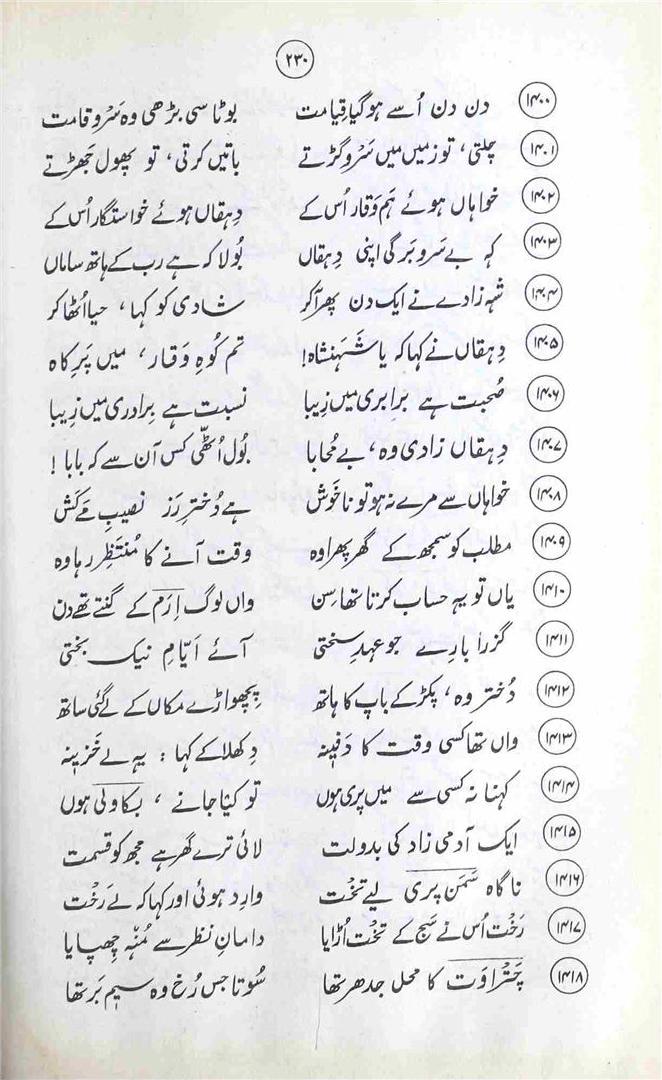 ۲۳۰
۱۴۰۰ دن دن اُسے ہوگیا قِیامت بوٹا سی بڑھی وہ سَرو قامت
۱۴۰۱ چلتی، تو زمیں میں سَرو گڑتے باتیں کرتی، تو پھول جَھڑتے
۱۴۰۲ خواہاں ہوئے ہَم وَقار اُس کے دِہقاں ہوئے خواستگار اُس کے
۱۴۰۳ کہہ بے سَرو بَرگی اپنی دِہقاں بُولا کہ ہے رب کے ہاتھ ساماں
۱۴۰۴ شہ زادے نے ایک دن پھر آکر شادی کو کہا، حیا اُٹھا کر
۱۴۰۵ دِہقاں نے کہا کہ یا شَہَنشاہ! تم کُوہِ وَقار، میں پَرِ کاہ
۱۴۰۶ صُحبت ہے برابری میں زِیبا نسبت ہے بِرادری میں زِیبا
۱۴۰۷ دِہقاں زادی وہ، بے مُحابا بُول اُٹھّی کس آن سے کہ بابا!
۱۴۰۸ خواہاں سے مرے نہ ہو تو ناخَوش ہے دُخترِ رَز نصیبِ مَے کَش
۱۴۰۹ مطلب کو سمجھ کے گھر پھرا وہ وقت آنے کا مُنتَظِر رہا وہ
۱۴۱۰ یاں تو یہ حساب کرتا تھا سِن واں لوگ اِرَم کے گنتے تھے دن
۱۴۱۱ گزرا بارے جو عہدِ سختی آئے اَیّامِ نیک بختی
۱۴۱۲ دُختر وہ، پکڑ کے باپ کا ہاتھ پِچھواڑے مکاں کے لے گئی ساتھ
۱۴۱۳ واں تھا کسی وقت کا دَفینہ دِکھلا کے کہا: یہ لے خَزینہ
۱۴۱۴ کہنا نہ کسی سے میں پری ہوں تو کیا جانے، بَکاولی ہوں
۱۴۱۵ ایک آدمی زاد کی بدولت لائی ترے گھر ہے مجھ کو قسمت
۱۴۱۶ ناگاہ سَمَن پری لیے تخت وارِد ہوئی اور کہا کہ لے رَخت
۱۴۱۷ رَخت اُس نے سج کے تخت اُڑایا دامانِ نظر سے مُنْہ چھپایا
۱۴۱۸ چَتراوَت کا محل جدھر تھا سُوتا جس رُخ وہ سیم بَر تھا